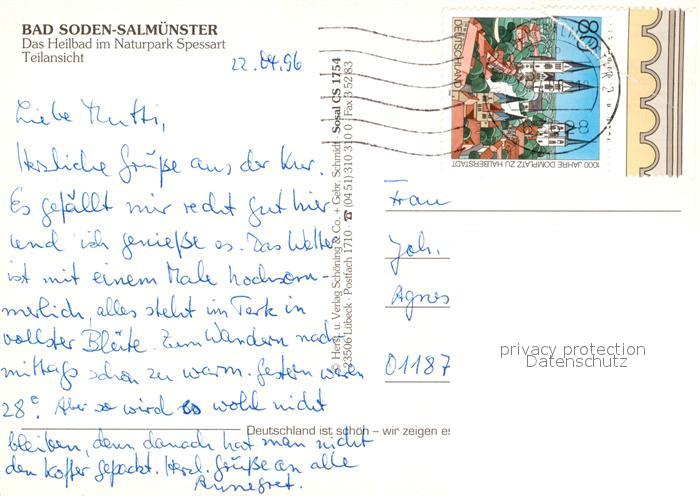 BAD SODEN-SALMÜNSTER
Das Heilbad im Naturpark Spessart
Teilansicht
22.04.96
Liebe Mutti,
Herzliche Grüße aus der Kur.
Es gefällt mir recht gut hier
und ich genieße es. Das Wetter
ist mit einem Male hochsom-
merlich, alles steht im Park in
vollster Blüte. Zum Wandern nach-
mittags schon zu warm. Gestern waren
28°. Aber so wird es wohl nicht
bleiben, denn danach hat man nicht
den Koffer gepackt. Herzl. Grüße an alle
Annegret.
© Herst. u. Verlag Schöning & Co. + Gebr. Schmidt Sosal CS 1754
23506 Lübeck · Postfach 1710 · ☎ (04 51) 310 310 · Fax 3 52 83
Deutschland ist schön – wir zeigen es
80
DEUTSCHLAND
1000 JAHRE DOMPLATZ ZU HALBERSTADT
Frau
Joh.
Agnes
01187
privacy protection
Datenschutz